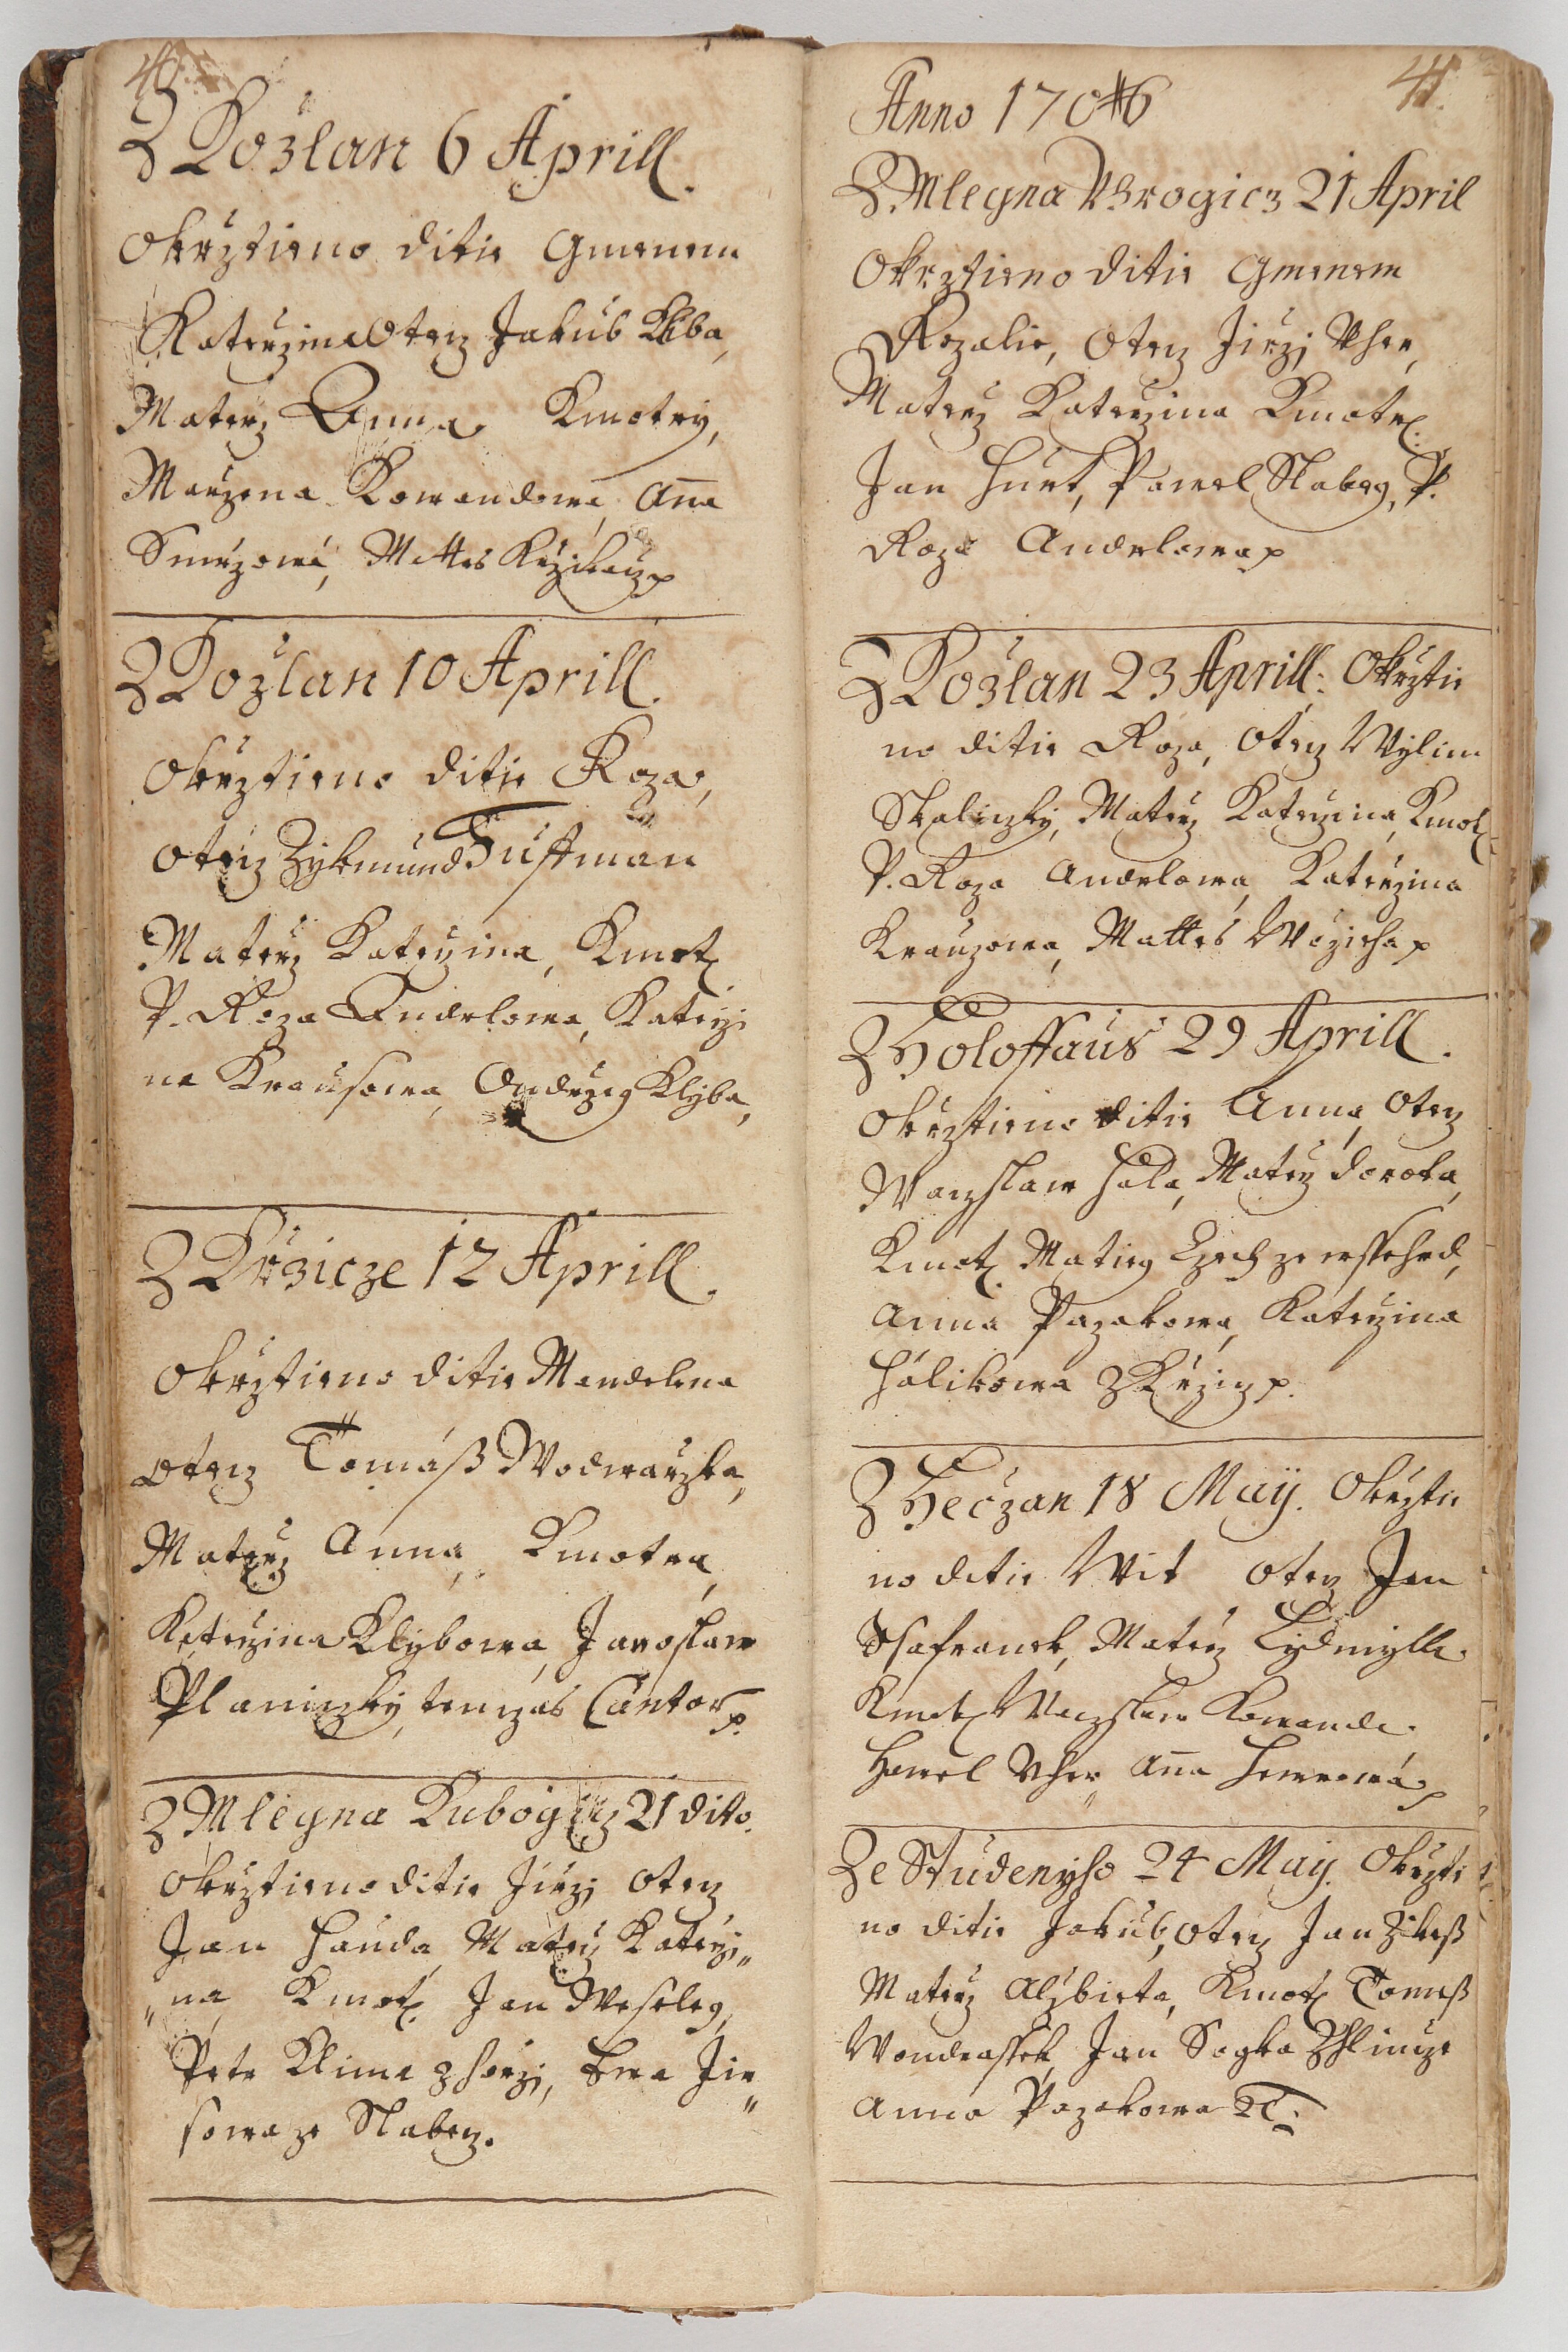 40
Z Kozlan 6 Aprill.
Okrztieno ditie Gmenem
Katerzina Otecz Jakub Kliba,
Materz Anna Kmotry,
Marzena Kowandowa, Ana
Smrzowa, Mattes
Z Kozlan 10 Aprill.
Okrztieno ditie Roza,
otecz Zykmund Tuffman
Materz Katerzina, Kmot
P. Roza Anderlowa, Katerzi
na Krausowa, Ondrzeg Klyba,
Z Krzicze 12 Aprill.
Okrztieno ditie Mandelena
otecz Tomáß Wodwarzka,
Materz Anna, Kmotra,
Katerzina Klybowa, Jaroslaw
Planiczky, tenczas Cantor p.
Z Mlegna Kubogicz 21 dito.
Okrztieno ditie Jirzi otecz
Jan Hauda, Materz Katerzi„
„na, Kmot. Jan Wesseleg,
Petr Klima z Horzi, Ewa Jir„
sowa ze Slabecz.
Anno 1706
41.
Z. Mlegna Vbrogicz 21 April
Okrztieno ditie Gmenem
Rozalie, Otecz Jirzi Vher,
Materz Katerzina Kmotr.
Jan Hurt, Pawel Slabeg, P.
Roza Anderlowa p
Z Kozlan 23 Aprill: Okrztie
no ditie Roza, Otecz Wylim
Skaliczky, Materz Katerzina, Kmot
P. Roza Anderlowa, Katerzina
Krauzowa, Mattes p
Z Holoffaus 29 Aprill.
Okrztieno ditie Anna, Otecz
Waczslaw Hala, Materz Dorota,
Kmot. Matieg Czech ze wssehrd,
Anna Pazakowa, Katerzina
Hálikowa z Krzicz p.
Z Heczan 18 Maij. Okrztie
no ditie Wit otecz Jan
Shafranek, Materz Lydmylla
Kmot. Waczslaw Kowanda
Hawel Vher, Ana p
Ze Studenyho 24 Maij. Okrztie
no ditie Jakub, Otecz Jan Zikeß
Materz Alzbieta, Kmot Tomaß
Wondrassek, Jan Sogka z Hlincze
Anna Pazakowa